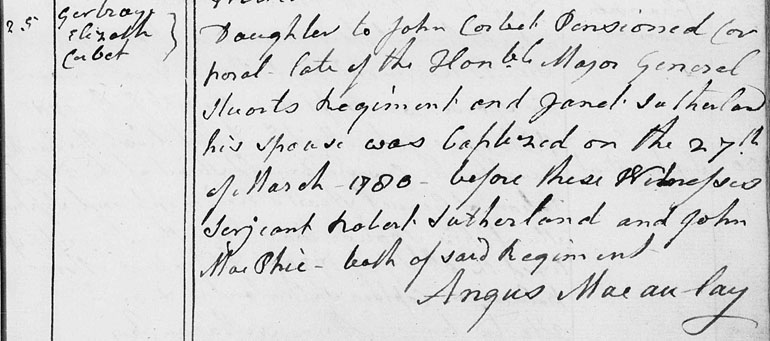 25
Elizath
Corbet
Daughter to John Corbet Pensioned Cor
poral late of the Honble Major General
Stuorts Regiment and Janet Sutherland
his spouse was baptized on the 27th
of March 1780 - before these Witnesses
Serjeant Robert Sutherland and John
MacPhie - both of said Regiment
Angus Macaulay